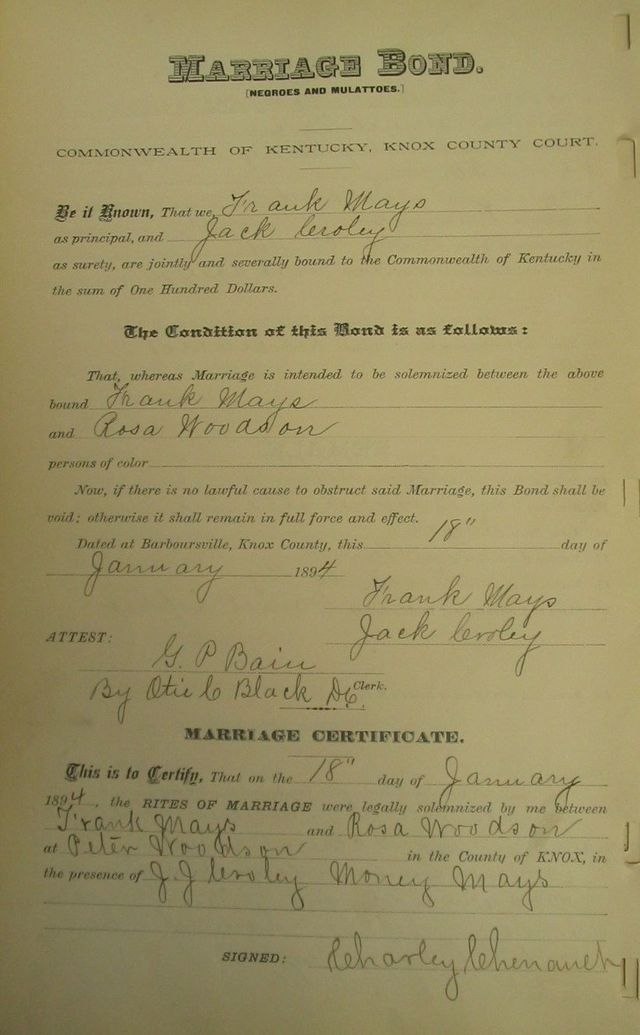 MARRIAGE BOND.
[NEGROES AND MULATTOES.]
COMMONWEALTH OF KENTUCKY, KNOX COUNTY COURT.
Be it Known, That we, Frank Mays
as principal, and Jack Croley
as surety, are jointly and severally bound to the Commonwealth of Kentucky in
the sum of One Hundred Dollars.
The Condition of this Bond is as follows:
That, whereas Marriage is intended to be solemnized between the above
bound Frank Mays
and Rosa Woodson
persons of color
Now, if there is no lawful cause to obstruct said Marriage, this Bond shall be
void; otherwise it shall remain in full force and effect.
Dated at Barboursville, Knox County, this 18" day of
January 1894
Frank Mays
ATTEST: Jack Croley
G. P Bain
By Otis C Black DC Clerk.
MARRIAGE CERTIFICATE.
This is to Certify, That on the 18" day of January
1894, the RITES OF MARRIAGE were legally solemnized by me between
Frank Mays and Rosa Woodson
at Peter Woodson in the County of KNOX, in
the presence of J. J Croley Money Mays
SIGNED: Charley